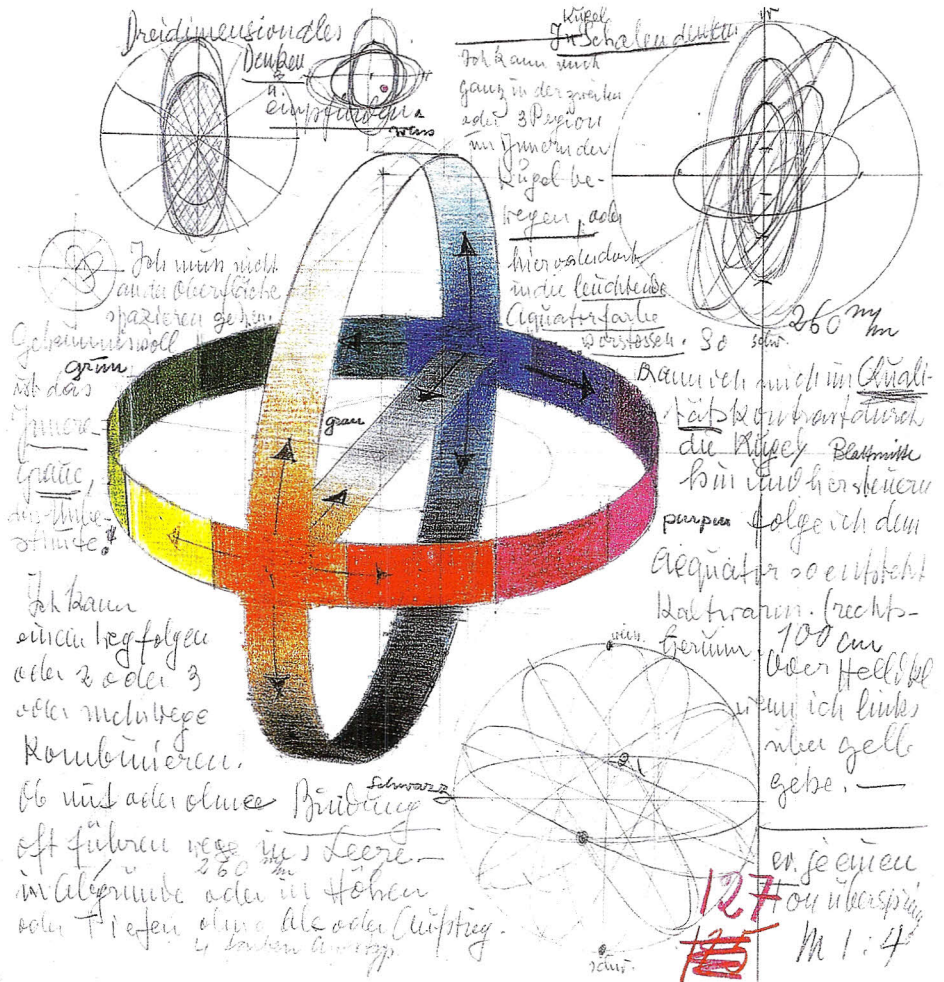 Dreidimensionales
Denken
u.
empfinden
weiss
Kugel
In Schalen denken
Ich kann mich
ganz in der zweiten
oder 3 Region
im Innern der
Kugel be-
wegen, oder
hier
in die leuchtende
Aequatorfarbe
vorstossen. So
kann ich mich im Quali-
tätskontrast durch
die Kugel
hin und her steuern
folge ich dem
Aequator so entsteht
Kaltwarm. (rechts-
herum
oder Helldkl
wenn ich links
über gelb
gehe. —
W
schw.
260 mm
Blattmitte
Ich muss nicht
an der Oberfläche
spazieren gehen.
Geheimnisvoll
ist das
Innere-
Graue,
das Unbe-
stimmte!
grün
grau
purpur
Schwarz
Ich kann
einem Weg folgen
oder 2 oder 3
oder mehr Wege
Kombinieren.
Ob mit oder ohne Bindung
oft führen Wege ins Leere—
260 mm
in Abgründe oder in Höhen
oder Tiefen ohne Ab oder Aufstieg.
weiss.
100 cm
schw.
er je einen
Ton überspring
127
125
M 1:4